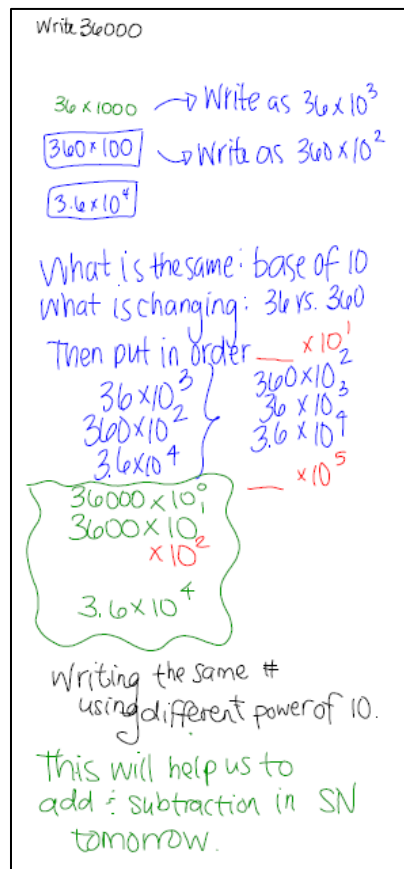 Write 36000
36 x 1000 → Write as 36 x 10³
360 x 100 → Write as 360 x 10²
3.6 x 10⁴
What is the same: base of 10
What is changing: 36 vs. 360
Then put in order __ x 10¹
36 x 10³ 360 x 10²
360 x 10² 36 x 10³
3.6 x 10⁴ 3.6 x 10⁴
36000 x 10⁰ __ x 10⁵
3600 x 10¹
x 10²
3.6 x 10⁴
Writing the same #
using different power of 10.
This will help us to
add & subtraction in SN
tomorrow.